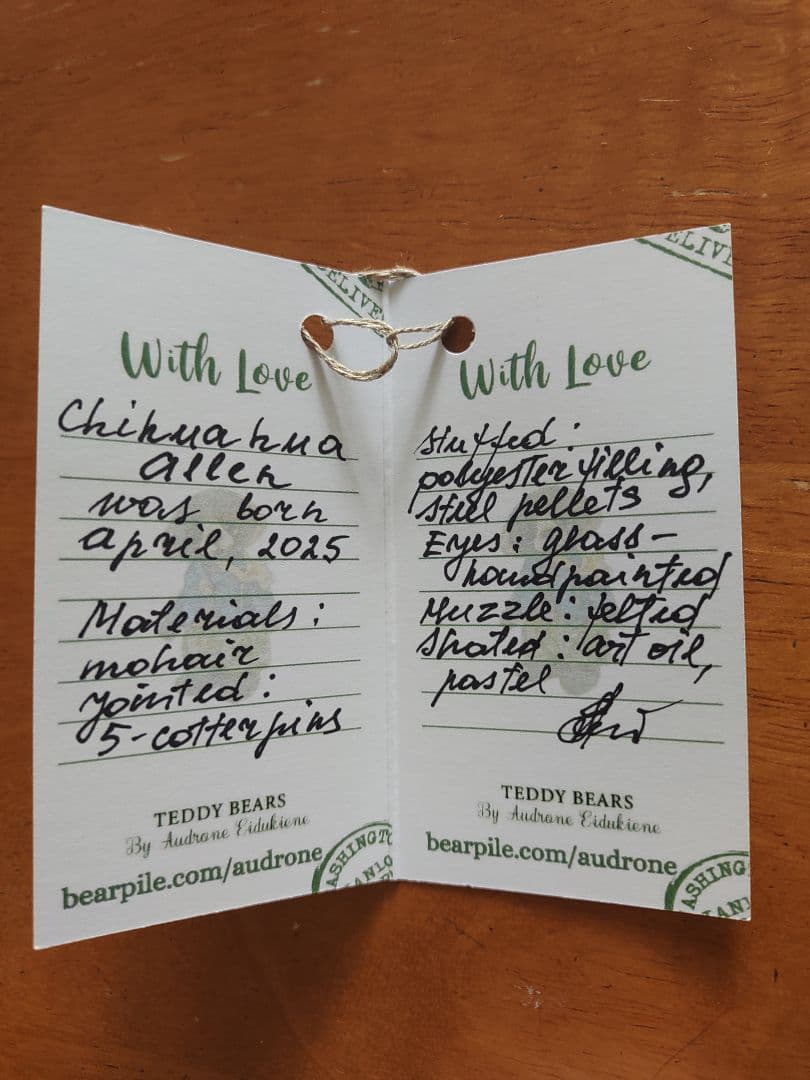 With Love
Chihuahua
Allen
was born
april, 2025
Materials:
mohair
Jointed:
5-cotter pins
TEDDY BEARS
By Audrone Eidukiene
bearpile.com/audrone
ASHINGTO
With Love
Stuffed:
polyester filling,
steel pellets
Eyes: glass-
handpainted
Muzzle: felted
Shated: art oil,
pastel
TEDDY BEARS
By Audrone Eidukiene
bearpile.com/audrone
ASHING